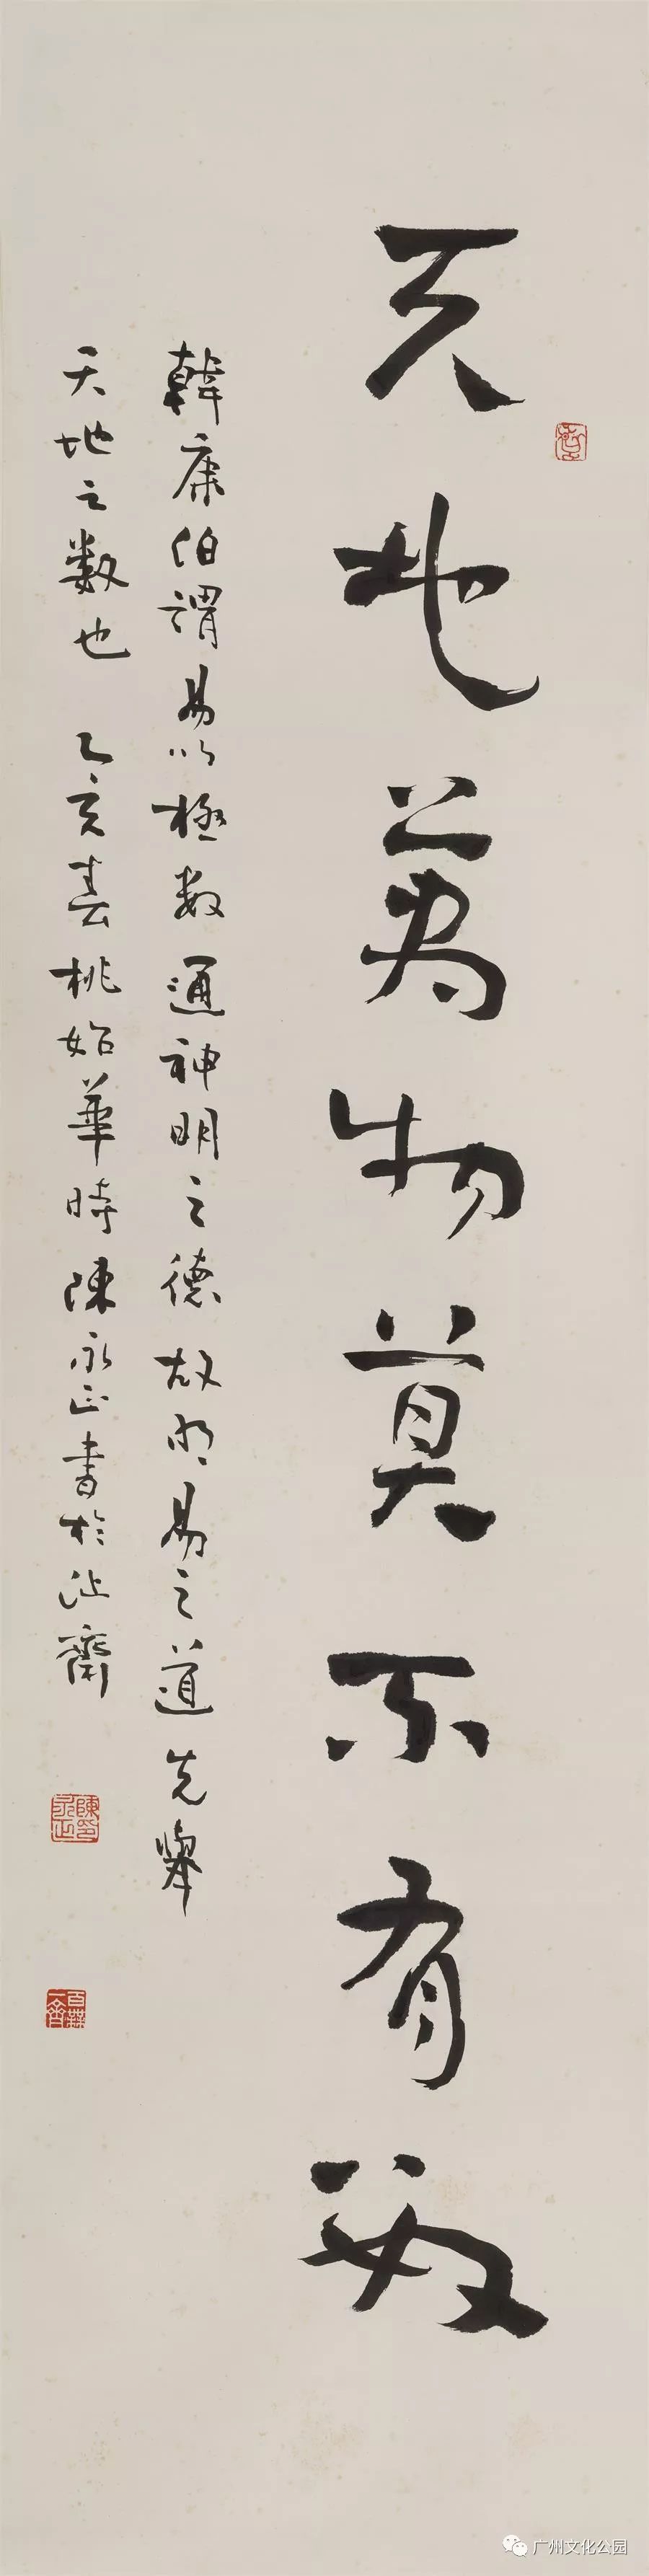 天地萬物莫不有数
韓康伯謂易以極数通神明之德故明易之道先舉
天地之数也 乙亥春桃始華時陳永正書於沚齋
陳永正印
廣州文化公园